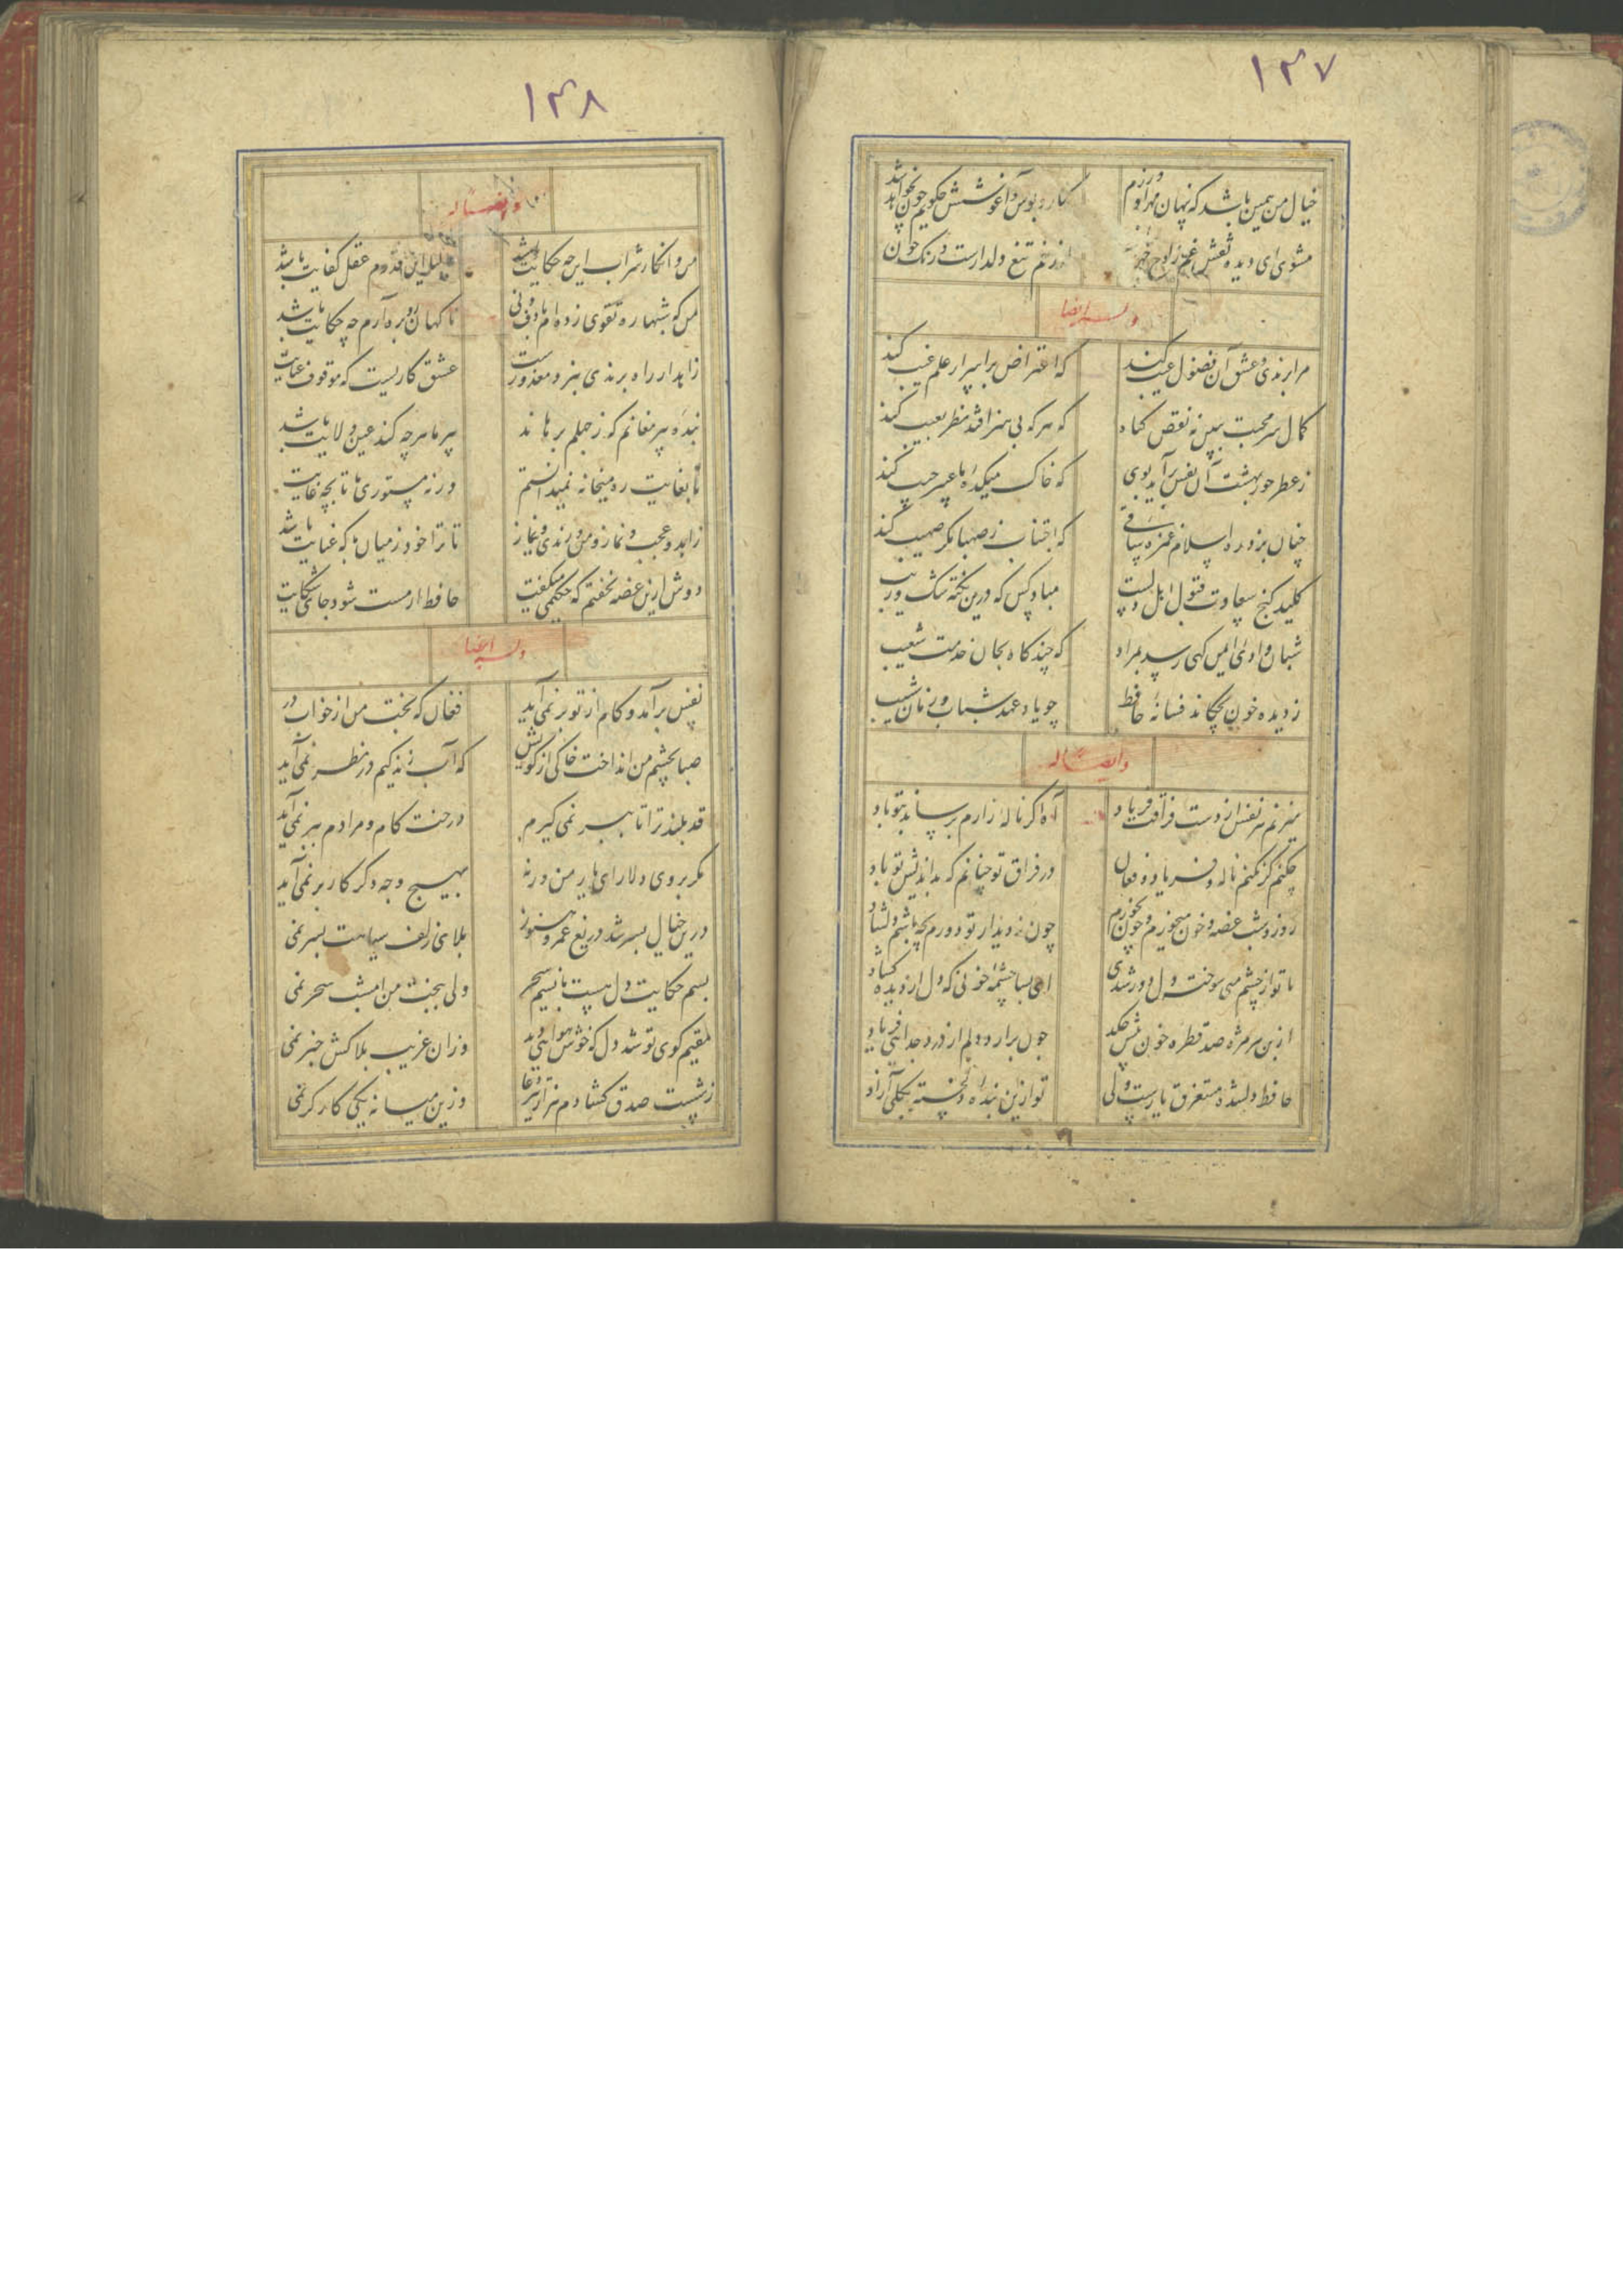 ۱۴۷
خیال من همین باشد که پنهان مهر او ورزم
کنار و بوس و آغوشش چگویم چون نخواهد شد
مشوی ای دیده نقش غم ز لوح
زخم تیغ دلدارست و رنگ خون
وله ایضا
مرا برندی و عشق آن فضول عیب کند
که اعتراض بر اسرار علم غیب کند
کمال سر محبت ببین نه نقص کناه
که هر که بی هنر افتد نظر بعیب کند
ز عطر حور بهشت آن نفس برآید بوی
که خاک میکدهٔ ما عبیر جیب کند
چنان بزد ره اسلام غمزهٔ ساقی
که اجتناب ز صهبا مگر صهیب کند
کلید کنج سعادت قبول اهل دلست
مباد کس که درین نکته شک و ریب
شبان وادی ایمن کهی رسد بمراد
که چند کاه بجان خدمت شعیب
ز دیده خون بچکاند فسانهٔ حافظ
چو یاد عهد شباب و زمان شیب
وایضا له
میزنم هر نفس از دست فراقت فریاد
آه اگر نالهٔ زارم نرساند بتو باد
چکنم گر نکنم ناله و فریاد و فغان
در فراق تو چنانم که بداندیش تو باد
روز و شب غصه و خون میخورم و چون نخورم
چون ز دیدار تو دورم بچه باشم دلشاد
تا تو از چشم من سوخته دل دور شدی
ای بسا چشمهٔ خونی که دل از دیده کشاد
از بن هر مژه صد قطره خون بیش چکد
چون برارد دلم از درد جدائی فریاد
حافظ دلشده مستغرق یادست ولی
تو ازین بندهٔ دلخسته بکلی آزاد
۱۴۸
وایضا له
من و انکار شراب این چه حکایت باشد
این قدرم عقل کفایت باشد
من که شبها ره تقوی زده ام با دف و نی
ناکهان رو بره آرم چه حکایت باشد
زاهد ار راه برندی نبرد معذورست
عشق کاریست که موقوف عنایت
بندهٔ پیر مغانم که ز جهلم برهاند
پیر ما هرچه کند عین ولایت باشد
تا بغایت ره میخانه نمیدانستم
ورنه مستوری ما تا بچه غایت
زاهد و عجب و نماز و من و رندی و نیاز
تا ترا خود ز میان با که عنایت باشد
دوش ازین غصه نخفتم که حکیمی میکفت
حافظ ار مست شود جای شکایت
وله ایضا
نفس برآمد و کام از تو بر نمی آید
فغان که بخت من از خواب در
صبا بچشم من انداخت خاکی از کویش
که آب زندکیم در نظر نمی آید
قد بلند ترا تا ببر نمی گیرم
درخت کام و مرادم ببر نمی آید
مگر بروی دلارای یار من ورنه
بهیچ وجه دگر کار بر نمی آید
درین خیال بسر شد دریغ عمر و هنوز
بلای زلف سیاهت بسر نمی
بسم حکایت دل هست با نسیم سحر
ولی ببخت من امشب سحر نمی
مقیم کوی تو شد دل که خوش هوائی دید
وزان غریب بلاکش خبر نمی
ز شست صدق کشادم هزار تیر دعا
وزین میانه یکی کارگر نمی